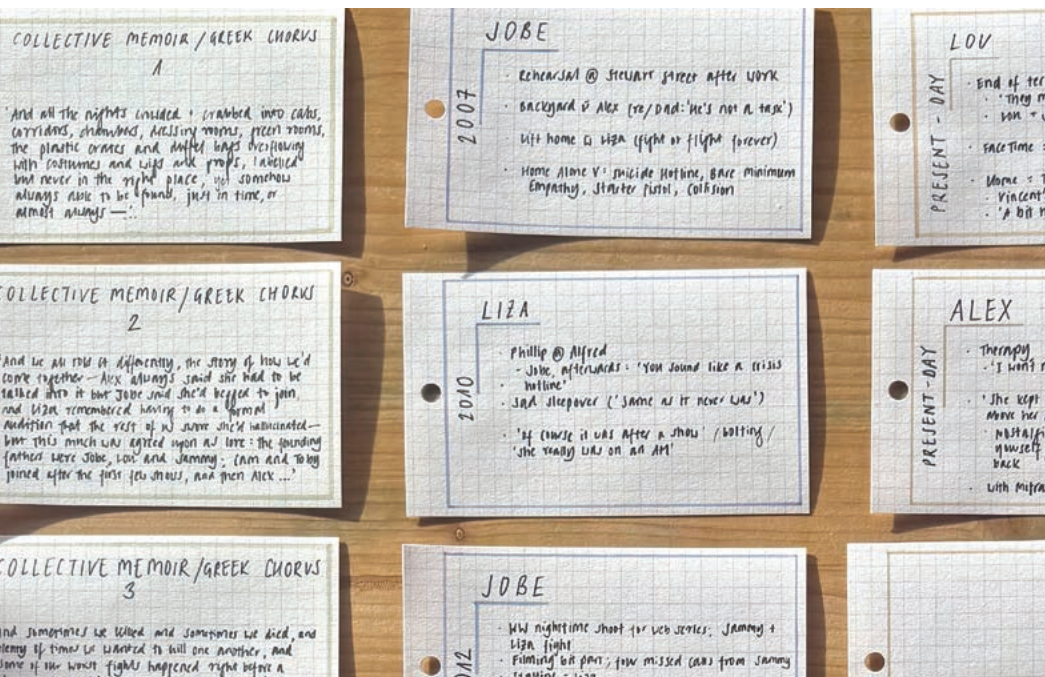 COLLECTIVE MEMOIR / GREEK CHORUS
1
'And all the nights crowded + crabbed into cabs,
corridors, chambers, dressing rooms, green rooms,
the plastic crates and duffel bags overflowing
with costumes and wigs and props, labelled
but never in the right place, yet somehow
always able to be found, just in time, or
almost always —...
COLLECTIVE MEMOIR / GREEK CHORUS
2
'And we all told it differently, the story of how we'd
come together — Alex always said she had to be
talked into it but Jobe said she'd begged to join,
and Liza remembered having to do a formal
audition that the rest of us swore she'd hallucinated —
but this much was agreed upon as lore: the founding
fathers were Jobe, Lou and Sammy; Cam and Toby
joined after the first few shows, and then Alex ...'
COLLECTIVE MEMOIR / GREEK CHORUS
3
And sometimes we killed and sometimes we died, and
plenty of times we wanted to kill one another, and
some of our worst fights happened right before a
JOBE
2007
· Rehearsal @ Stewart Street after work
· Backyard w Alex (re/Dad: 'He's not a task')
· Lift home w Liza (fight or flight forever)
· Home Alone V: Suicide Hotline, Bare minimum
Empathy, Starter Pistol, Collision
LIZA
2010
· Phillip @ Alfred
- Jobe, afterwards: 'You sound like a crisis
hotline'
· Sad sleepover ('Same as it never was')
· 'Of course it was after a show' / bolting /
'she really was on an AM'
JOBE
2012
· WW nighttime shoot for web series; Sammy +
Liza fight
· Filming bit part; few missed calls from Sammy
LOU
PRESENT-DAY
· End of ter
· 'They m
· Lou
· FaceTime =
Vincent'
· 'A bit
ALEX
PRESENT-DAY
· Therapy
· 'I won't
· 'She kept
move her
nostalgi
yourself
back
· with Mitra